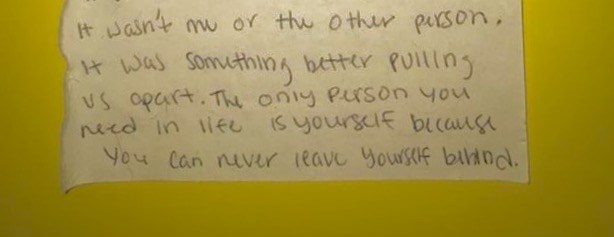 It wasn't me or the other person.
It was something better pulling
us apart. The only person you
need in life is yourself because
you can never leave yourself behind.